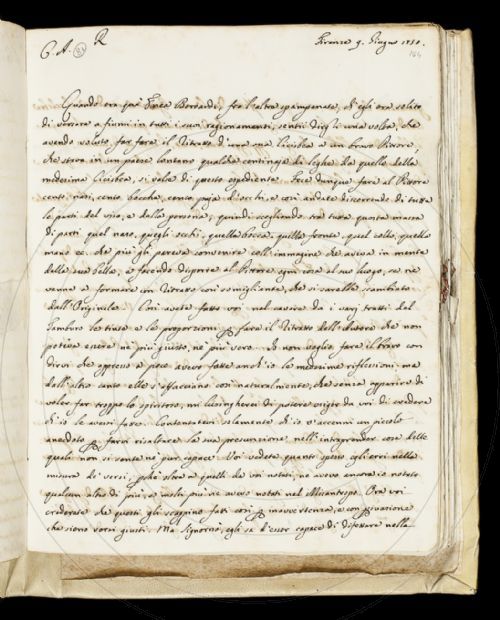 C. A. R
Firenze 9. Giugno 1751.
Quando era qua Bernardi, fra l'altre spampanate, ch'egli era solito
di versare a fiumi in tutti i suoi ragionamenti, sentii dirgli una volta, che
avendo voluto far fare il Ritratto d'una sua Cicisbea a un bravo Pittore,
che stava in un paese lontano qualche centinajo di leghe da quello della
medesima Cicisbea, si valse di questo espediente. Fece dunque fare al Pittore
cento nasi, cento bocche, cento paja d'occhi, e così andate discorrendo di tutte
le parti del viso, e della persona, quindi scegliendo tra tutta questa massa
di parti quel naso, quegli occhi, quella bocca, quella fronte, quel collo, quella
mano ec. che più gli pareva convenire coll'immagine che aveva in mente
della sua bella, e facendo disporre al Pittore ogni cosa al suo luogo, se ne
venne a formare un Ritratto così somigliante, che si sarebbe scambiato
dall'Originale. Così avete fatto voi nel cavare da i varj tratti del
Tamburo le tinte e le proporzioni p fare il Ritratto dell'Autore che non
poteva essere nè più giusto, nè più vero. Io non voglio fare il bravo con
dirvi che appresso a poco avevo fatte anch'io le medesime riflessioni, ma
dall'altro canto elle s'affacciano così naturalmente, che senza apparire di
voler far troppo lo spiritoso, mi lusingherei di potere esiger da voi di credere
ch'io le avessi fatte. Contentatevi solamente ch'io v'accenni un piccolo
anedoto p farvi risaltare la sua presunzione nell'intraprender cose delle
quali non si sente nè pur capace. Voi vedete quanto spesso egli erri nella
misura de' versi, poichè oltre a quelli da voi notati, ne avevo ancora io notato
qualcun altro di più, e molti più ne avevo notati nel Misantropo. Ora voi
crederete che questi gli scappino fatti così p inavvertenza, e con persuazione
che sieno versi giusti. Ma Signornò, egli sa d'esser capace di difettare nella